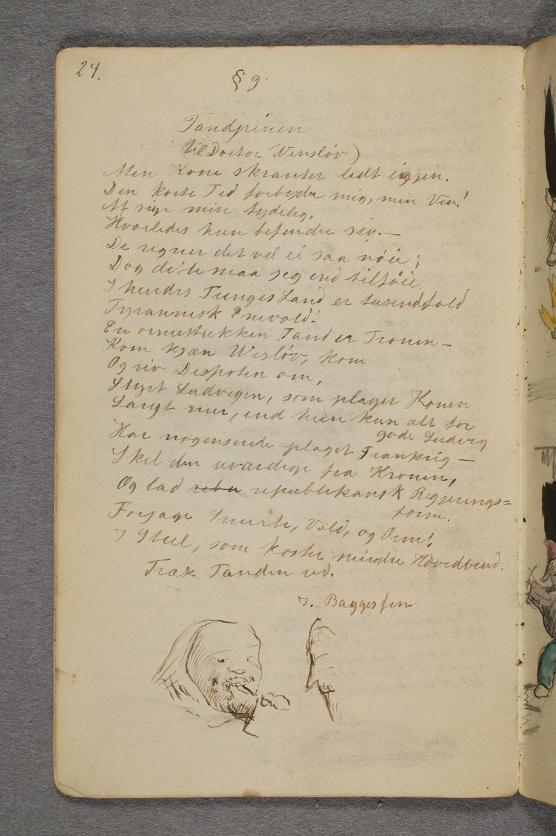 24.
§ 9.
Tandpinen
(til Doctor Winsløv)
Men Kone skranter lidt igjen.
Den korte Tid forbyder mig, min Ven!
At sige min tydelig,
Hvorledes hun befinder sig. —
De regner det vel ei saa nøie;
Dog dette maa jeg end tilføie
I hendes Tunges Land er tusendfold
Tyrannisk Enevold!
En ormestukken Tand er Tronen —
Kom kjæn Wisløv, kom
Og riv Despoten om,
Styrt Ludvigen, som plager Konen
Langt mer, end hun kun alt for
gode Ludvig
Har nogensinde plaget Frankrig —
Skil den uværdige fra Kronen,
Og lad republikansk Regjerings=
form.
Forjage Smerte, Vold, og Orm!
I Stul, som koster mindre Hovedbrud.
Træk Tanden ud.
J. Baggesen